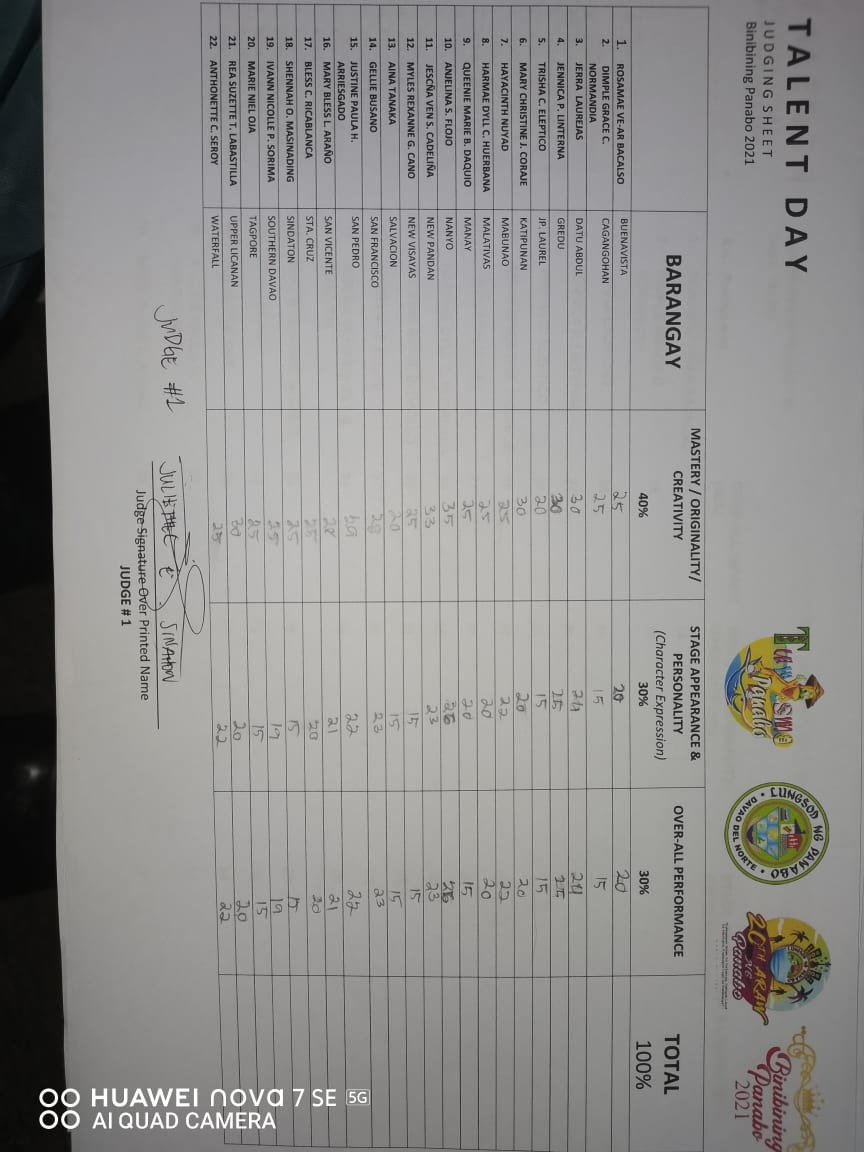 TALENT DAY
JUDGING SHEET
Binibining Panabo 2021
Turismo Panabo
LUNGSOD NG PANABO
DAVAO DEL NORTE
20TH ARAW
Panabo
Binibining
Panabo
2021
BARANGAY MASTERY / ORIGINALITY/ CREATIVITY 40% STAGE APPEARANCE & PERSONALITY (Character Expression) 30% OVER-ALL PERFORMANCE 30% TOTAL 100%
1. ROSAMAE VE-AR BACALSO BUENAVISTA 25 20 20
2. DIMPLE GRACE C. NORMANDIA CAGANGOHAN 25 15 15
3. JERRA LAUREJAS DATU ABDUL 30 24 24
4. JENNICA P. LINTERNA GREDU 30 25 25
5. TRISHA C. ELEPTICO JP. LAUREL 20 15 15
6. MARY CHRISTINE J. CORAJE KATIPUNAN 30 20 20
7. HAYACINTH NUYAD MABUNAO 25 22 22
8. HARMAE DYLL C. HUERBANA MALATIVAS 25 20 20
9. QUEENIE MARIE B. DAQUIO MANAY 25 20 15
10. ANJELINA S. FLOJO NANYO 35 26 26
11. JESCÑA VEN S. CADELIÑA NEW PANDAN 33 23 23
12. MYLES REXANNE G. CANO NEW VISAYAS 25 15 15
13. AINA TANAKA SALVACION 20 15 15
14. GELLIE BUSANO SAN FRANCISCO 28 23 23
15. JUSTINE PAULA H. ARRIESGADO SAN PEDRO 22 22
16. MARY BLESS L. ARAÑO SAN VICENTE 28 21 21
17. BLESS C. RICABLANCA STA. CRUZ 25 20 20
18. SHENNAH O. MASINADING SINDATON 25 15 15
19. IVANN NICOLLE P. SORIMA SOUTHERN DAVAO 25 19 19
20. MARIE NIEL OJA TAGPORE 25 15 15
21. REA SUZETTE T. LABASTILLA UPPER LICANAN 30 20 20
22. ANTHONETTE C. SEROY WATERFALL 25 22 22
JUDGE #1 SINAHON
Judge Signature Over Printed Name
JUDGE # 1
HUAWEI nova 7 SE 5G
AI QUAD CAMERA